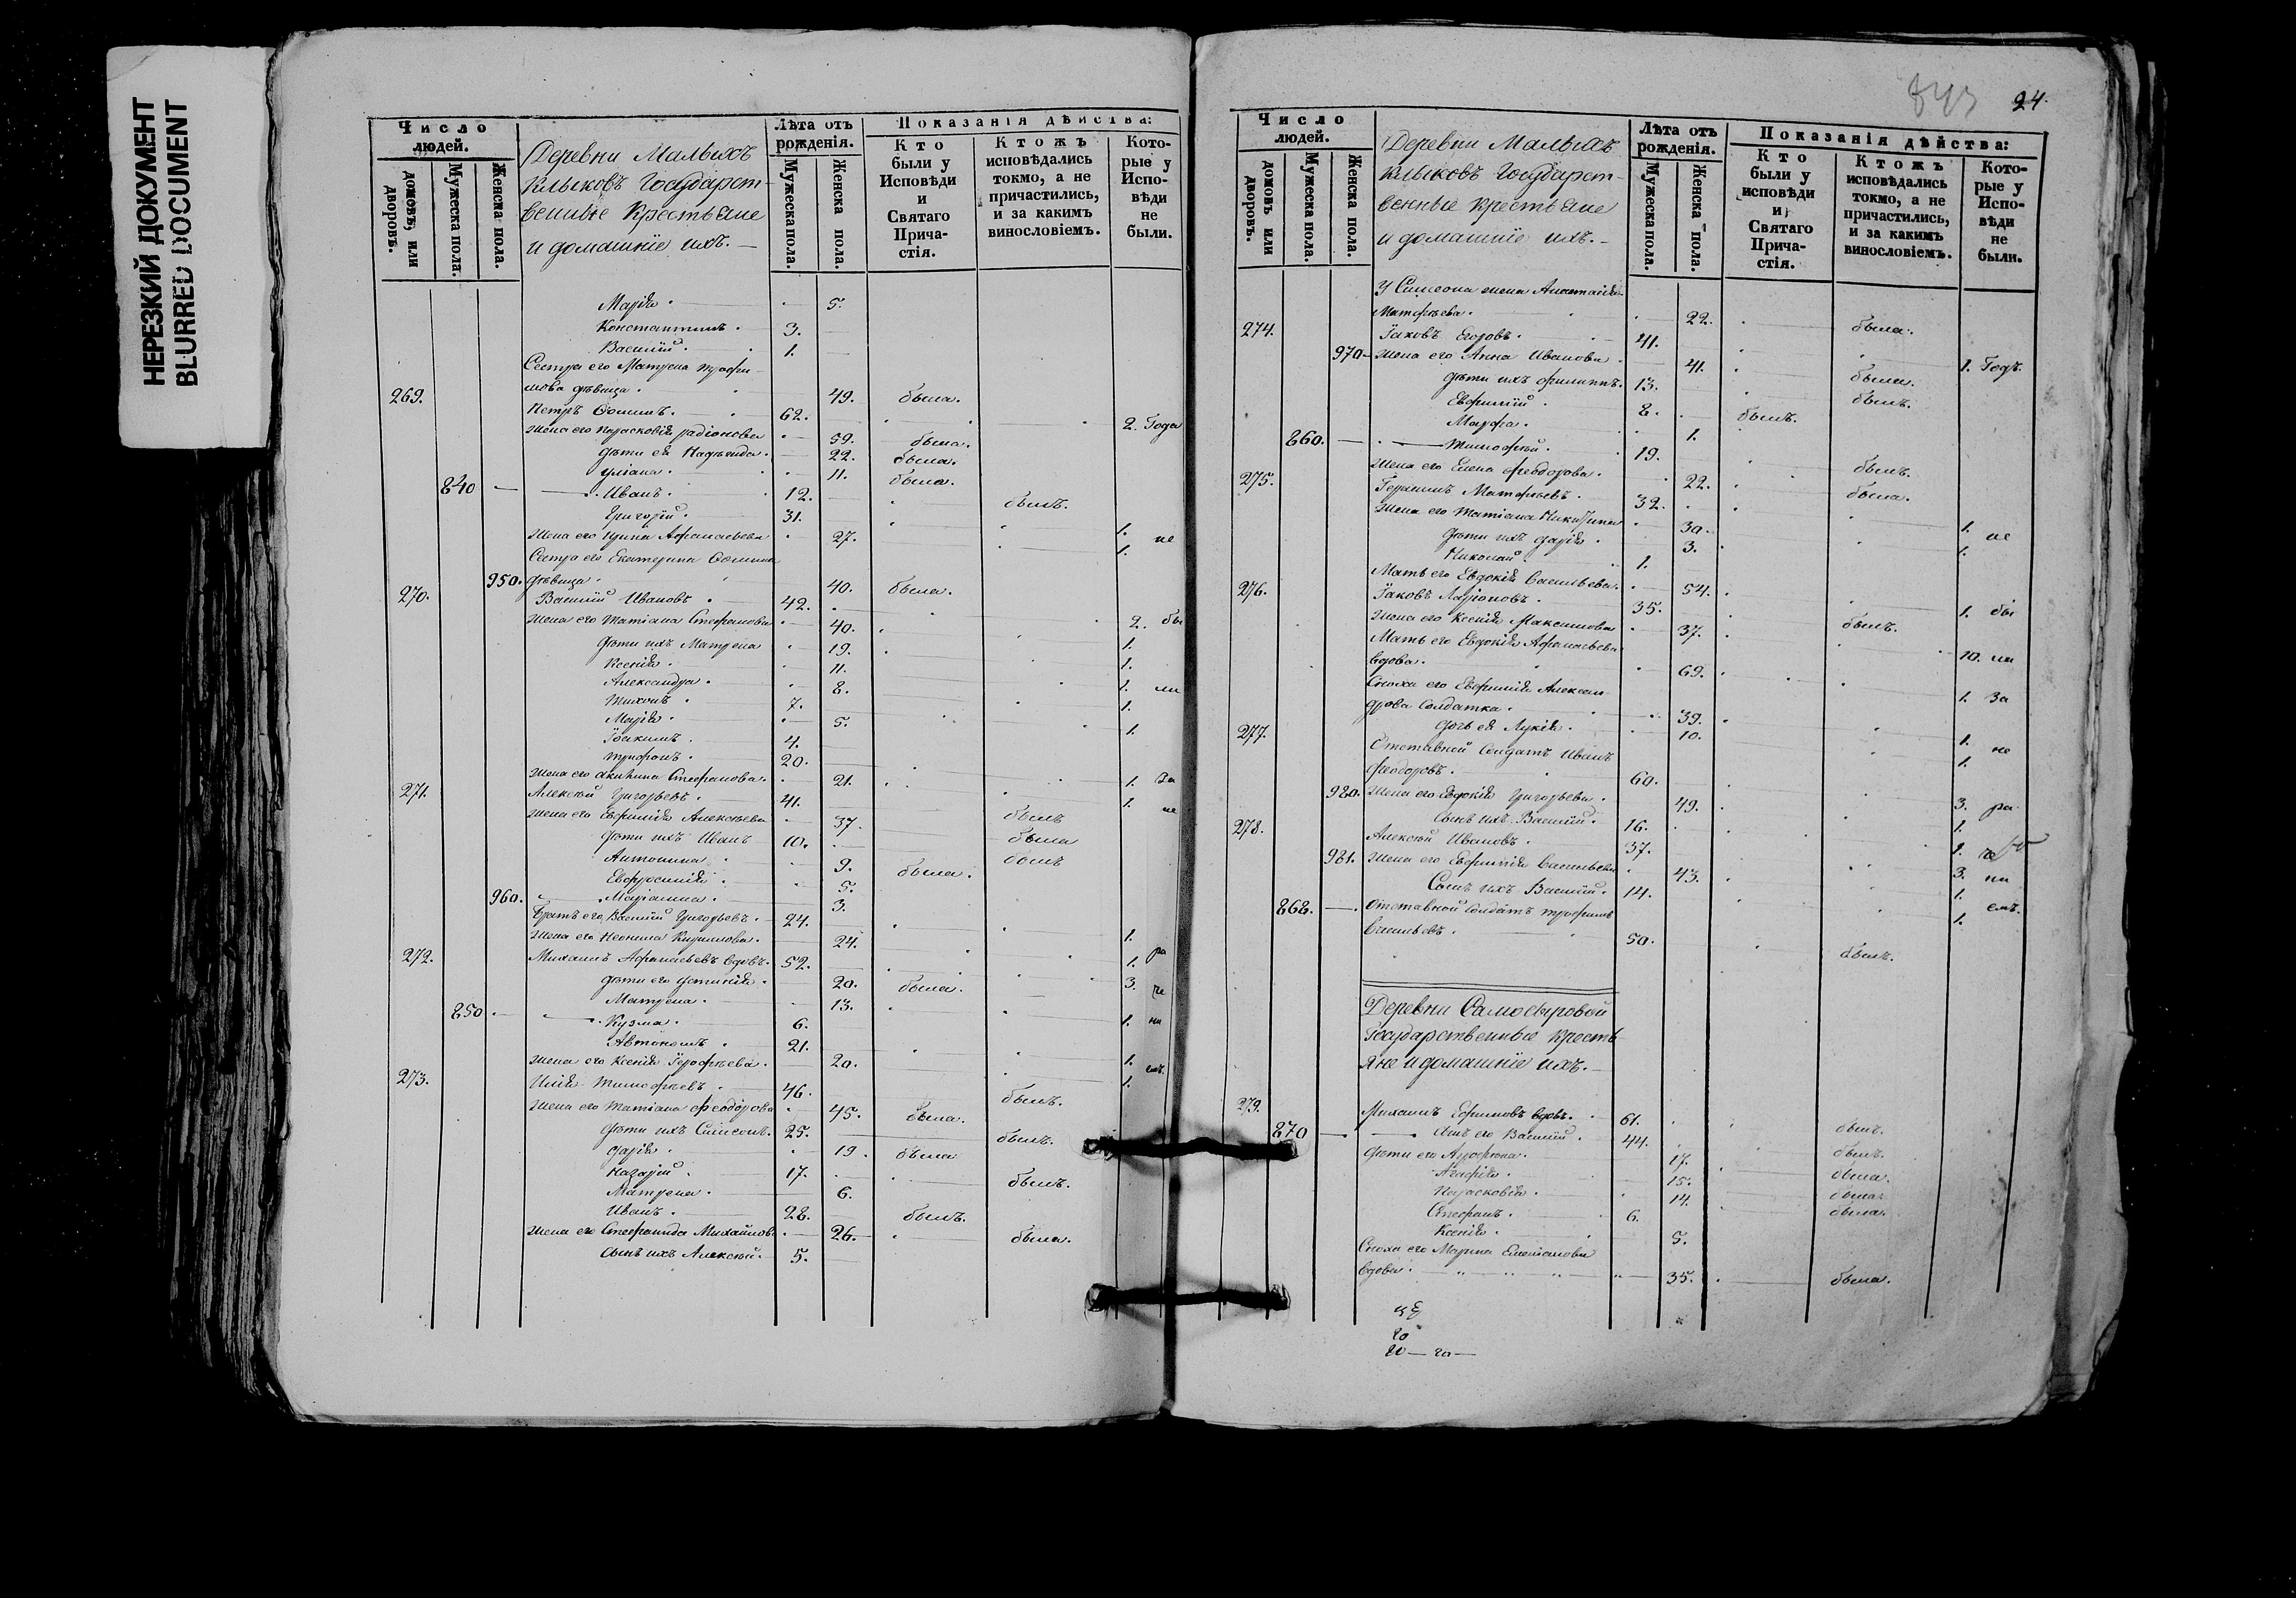 НЕРЕЗКИЙ ДОКУМЕНТ
BLURRED DOCUMENT
Число людей.
домовъ, или дворовъ.
Мужеска пола.
Женска пола.
Деревни Малыхъ
Клыковъ Государст-
венные Крестьяне
и домашніе ихъ.
Лѣта отъ рожденія.
Мужеска пола.
Женска пола.
Показанія дѣйства:
Кто были у Исповѣди и Святаго Прича-стія.
Ктожъ исповѣдались токмо, а не причастились, и за какимъ винословіемъ.
Кото-рые у Испо-вѣди не были.
Марія . 5.
Константинъ . 3.
Василій . 1.
Сестра его Матрена Трофи-
мова дѣвица . 49. была.
269. Петръ Ѳоминъ . 62. 2. Года
Жена его Парасковія Радіонова 59. была.
Дѣти ея Надежда . 22. была.
Уліана . 11. была.
840 Иванъ . 12. былъ.
Григорій . 31. 1.
Жена его Ирина Афанасьева 27. 1. не
Сестра его Екатерина Ѳомина
950. дѣвица . 40. была.
270. Василій Ивановъ . 42. 2. бы
Жена его Татіана Стефанова 40. 1.
Дѣти ихъ Матрена 19. 1.
Ксенія . 11. 1. ли
Александра . 8. 1.
Тихонъ . 7. 1.
Марія . 5.
Іоакимъ . 4.
Трифонъ . 20. 1. За
Жена его Акилина Стефанова . 21. 1. не
271. Алексѣй Григорьевъ . 41. былъ
Жена его Евфимія Алексѣева 37. была
Дѣти ихъ Иванъ 10. былъ
Антонина . 9. была.
Евфросинія . 5.
960. Маріанна . 3.
Братъ его Василій Григорьевъ . 24. 1.
Жена его Неонила Кирилова . 24. 1. ра
272. Михаилъ Афанасьевъ вдовъ . 52. 3. че
Дѣти его Устинія . 20. была.
Матрена . 13. 1. ни
850 Кузма . 6.
Автономъ . 21. 1.
Жена его Ксенія Іерофеева . 20. 1. емъ.
273. Илія Тимофеевъ . 46. былъ.
Жена его Татіана Феодорова 45. была.
Дѣти ихъ Симеонъ . 25. былъ.
Дарія . 19. была
Назарій . 17. былъ.
Матрена . 6.
Иванъ . 28. былъ.
Жена его Стефанида Михайлов. 26. была.
Сынъ ихъ Алексѣй . 5.
843 24.
Число людей.
домовъ или дворовъ.
Мужеска пола.
Женска пола.
Деревни Малыхъ
Клыковъ Государст-
венные Крестьяне
и домашніе ихъ.
Лѣта отъ рожденія.
Мужеска пола.
Женска пола.
Показанія дѣйства:
Кто были у исповѣди и Святаго Прича-стія.
Ктожъ исповѣдались токмо, а не причастились, и за какимъ винословіемъ.
Кото-рые у Испо-вѣди не были.
У Симеона жена Анастасія
Матфеева . 22. была.
274. Іаковъ Егоровъ . 41. 1. Годъ.
970 Жена его Анна Иванова . 41. была.
Дѣти ихъ Филиппъ . 13. былъ.
Евфимій . 8. былъ.
Марфа . 1.
860. Тимофей . 19. былъ.
Жена его Елена Феодорова . 22. была.
275. Герасимъ Матфеевъ . 32. 1. не
Жена его Татіана Никитина 30. 1.
Дѣти ихъ Дарія . 3.
Николай . 1.
Мать его Евдокія Васильева . 54. 1. бы
276. Іаковъ Ларіоновъ . 35. былъ.
Жена его Ксенія Максимова 37. 10. ли
Мать его Евдокія Афанасьева
вдова . 69. 1. За
Сноха его Евфимія Алексан-
дрова солдатка . 39. 1.
Дочь ея Лукія . 10. 1. не
277. Отставной Солдатъ Иванъ
Феодоровъ . 60. 3. ра
980. Жена его Евдокія Григорьева . 49. 1.
Сынъ ихъ Василій . 16. 1. че
278. Алексѣй Ивановъ . 37. 3. ни
981. Жена его Евфимія Васильева 43. 1.
Сынъ ихъ Василій . 14. 1. емъ.
868. Отставной Солдатъ Трофимъ
Васильевъ . 50. былъ.
Деревни Самосыровой
Государственные Кресть
яне и домашніе ихъ.
279. Михаилъ Ефимовъ вдовъ . 61. былъ.
870 Сынъ его Василій . 44. былъ.
Дѣти его Агрофена . 17. была.
Агафія . 15. была.
Парасковія . 14. была.
Стефанъ . 6.
Ксенія . 5.
Сноха его Марина Емеліанова
вдова . 35. была.